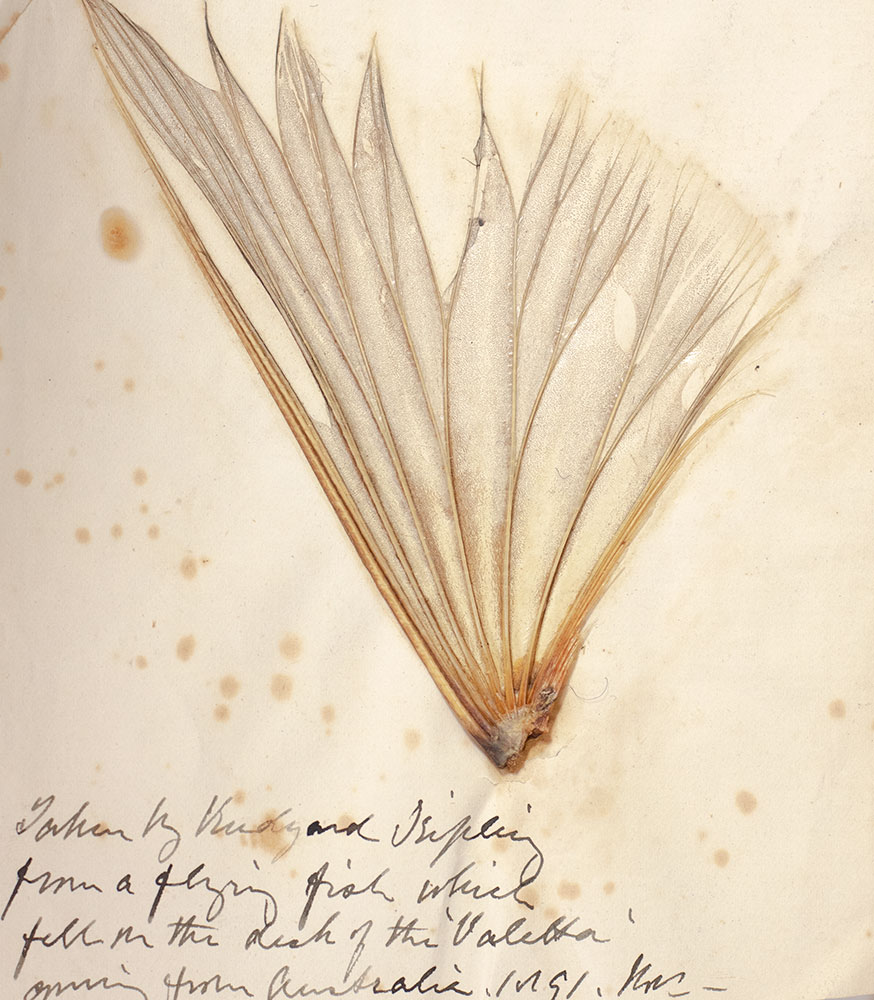 Taken by Rudyard Kipling
from a flying fish which
fell on the deck of the 'Valetta'
coming from Australia. 1891. Nov –